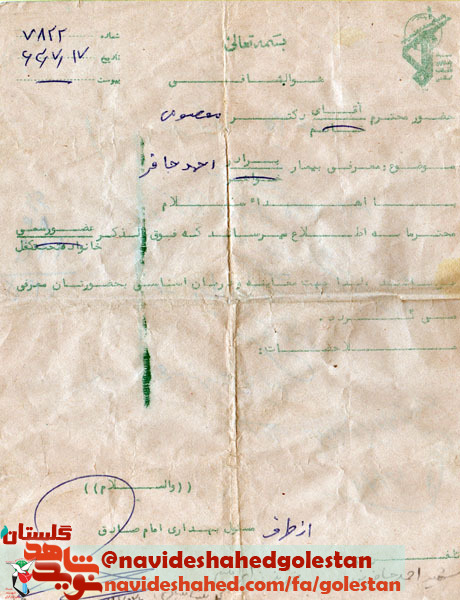 بسمه تعالی
شماره ۷۸۲۲
تاریخ ۶۲/۷/۱۷
پیوست
هوالشافی
حضور محترم آقای / خانم دکتر معصومی
موضوع: معرفی بیمار برادر / خواهر احمد حافر
با اهداء سلام
محترما به اطلاع میرساند که فوق الذکر عضو رسمی / خانواده تحت تکفل
میباشند لذا جهت معاینه و درمان اساسی بحضورتان معرفی
می گردد.
ملاحظات:
((والسلام))
از طرف مسئول بهداری امام صادق
گلستان
نوید شاهد
@navideshahedgolestan
navideshahed.com/fa/golestan